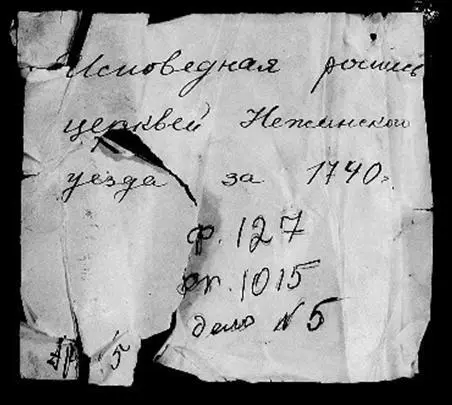 Исповедная роспись
церквей Нежинского
уезда за 1740г.
ф. 127
оп. 1015
дело №5